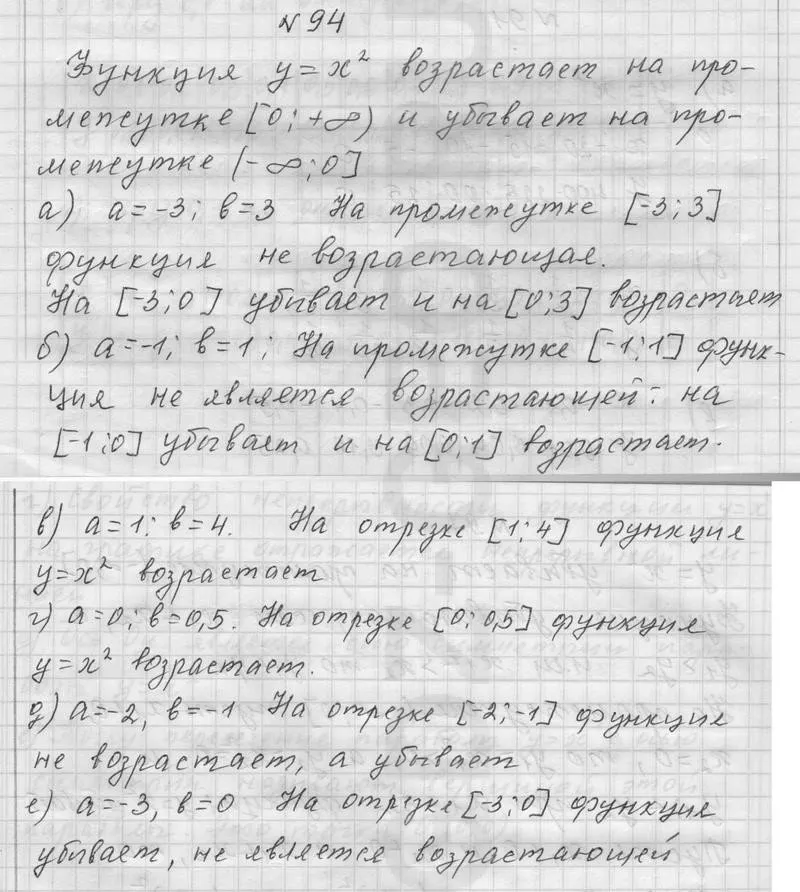 №94
Функция y = x² возрастает на про-
межутке [0; +∞) и убывает на про-
межутке [-∞; 0]
а) a = -3; b = 3 На промежутке [-3; 3]
функция не возрастающая.
На [-3; 0] убывает и на [0; 3] возрастает
б) a = -1; b = 1; На промежутке [-1; 1] функ-
ция не является возрастающей: на
[-1; 0] убывает и на [0; 1] возрастает.
в) a = 1; b = 4. На отрезке [1; 4] функция
y = x² возрастает
г) a = 0; b = 0,5. На отрезке [0; 0,5] функция
y = x² возрастает.
д) a = -2, b = -1 На отрезке [-2; -1] функция
не возрастает, а убывает
е) a = -3, b = 0 На отрезке [-3; 0] функция
убивает, не является возрастающей